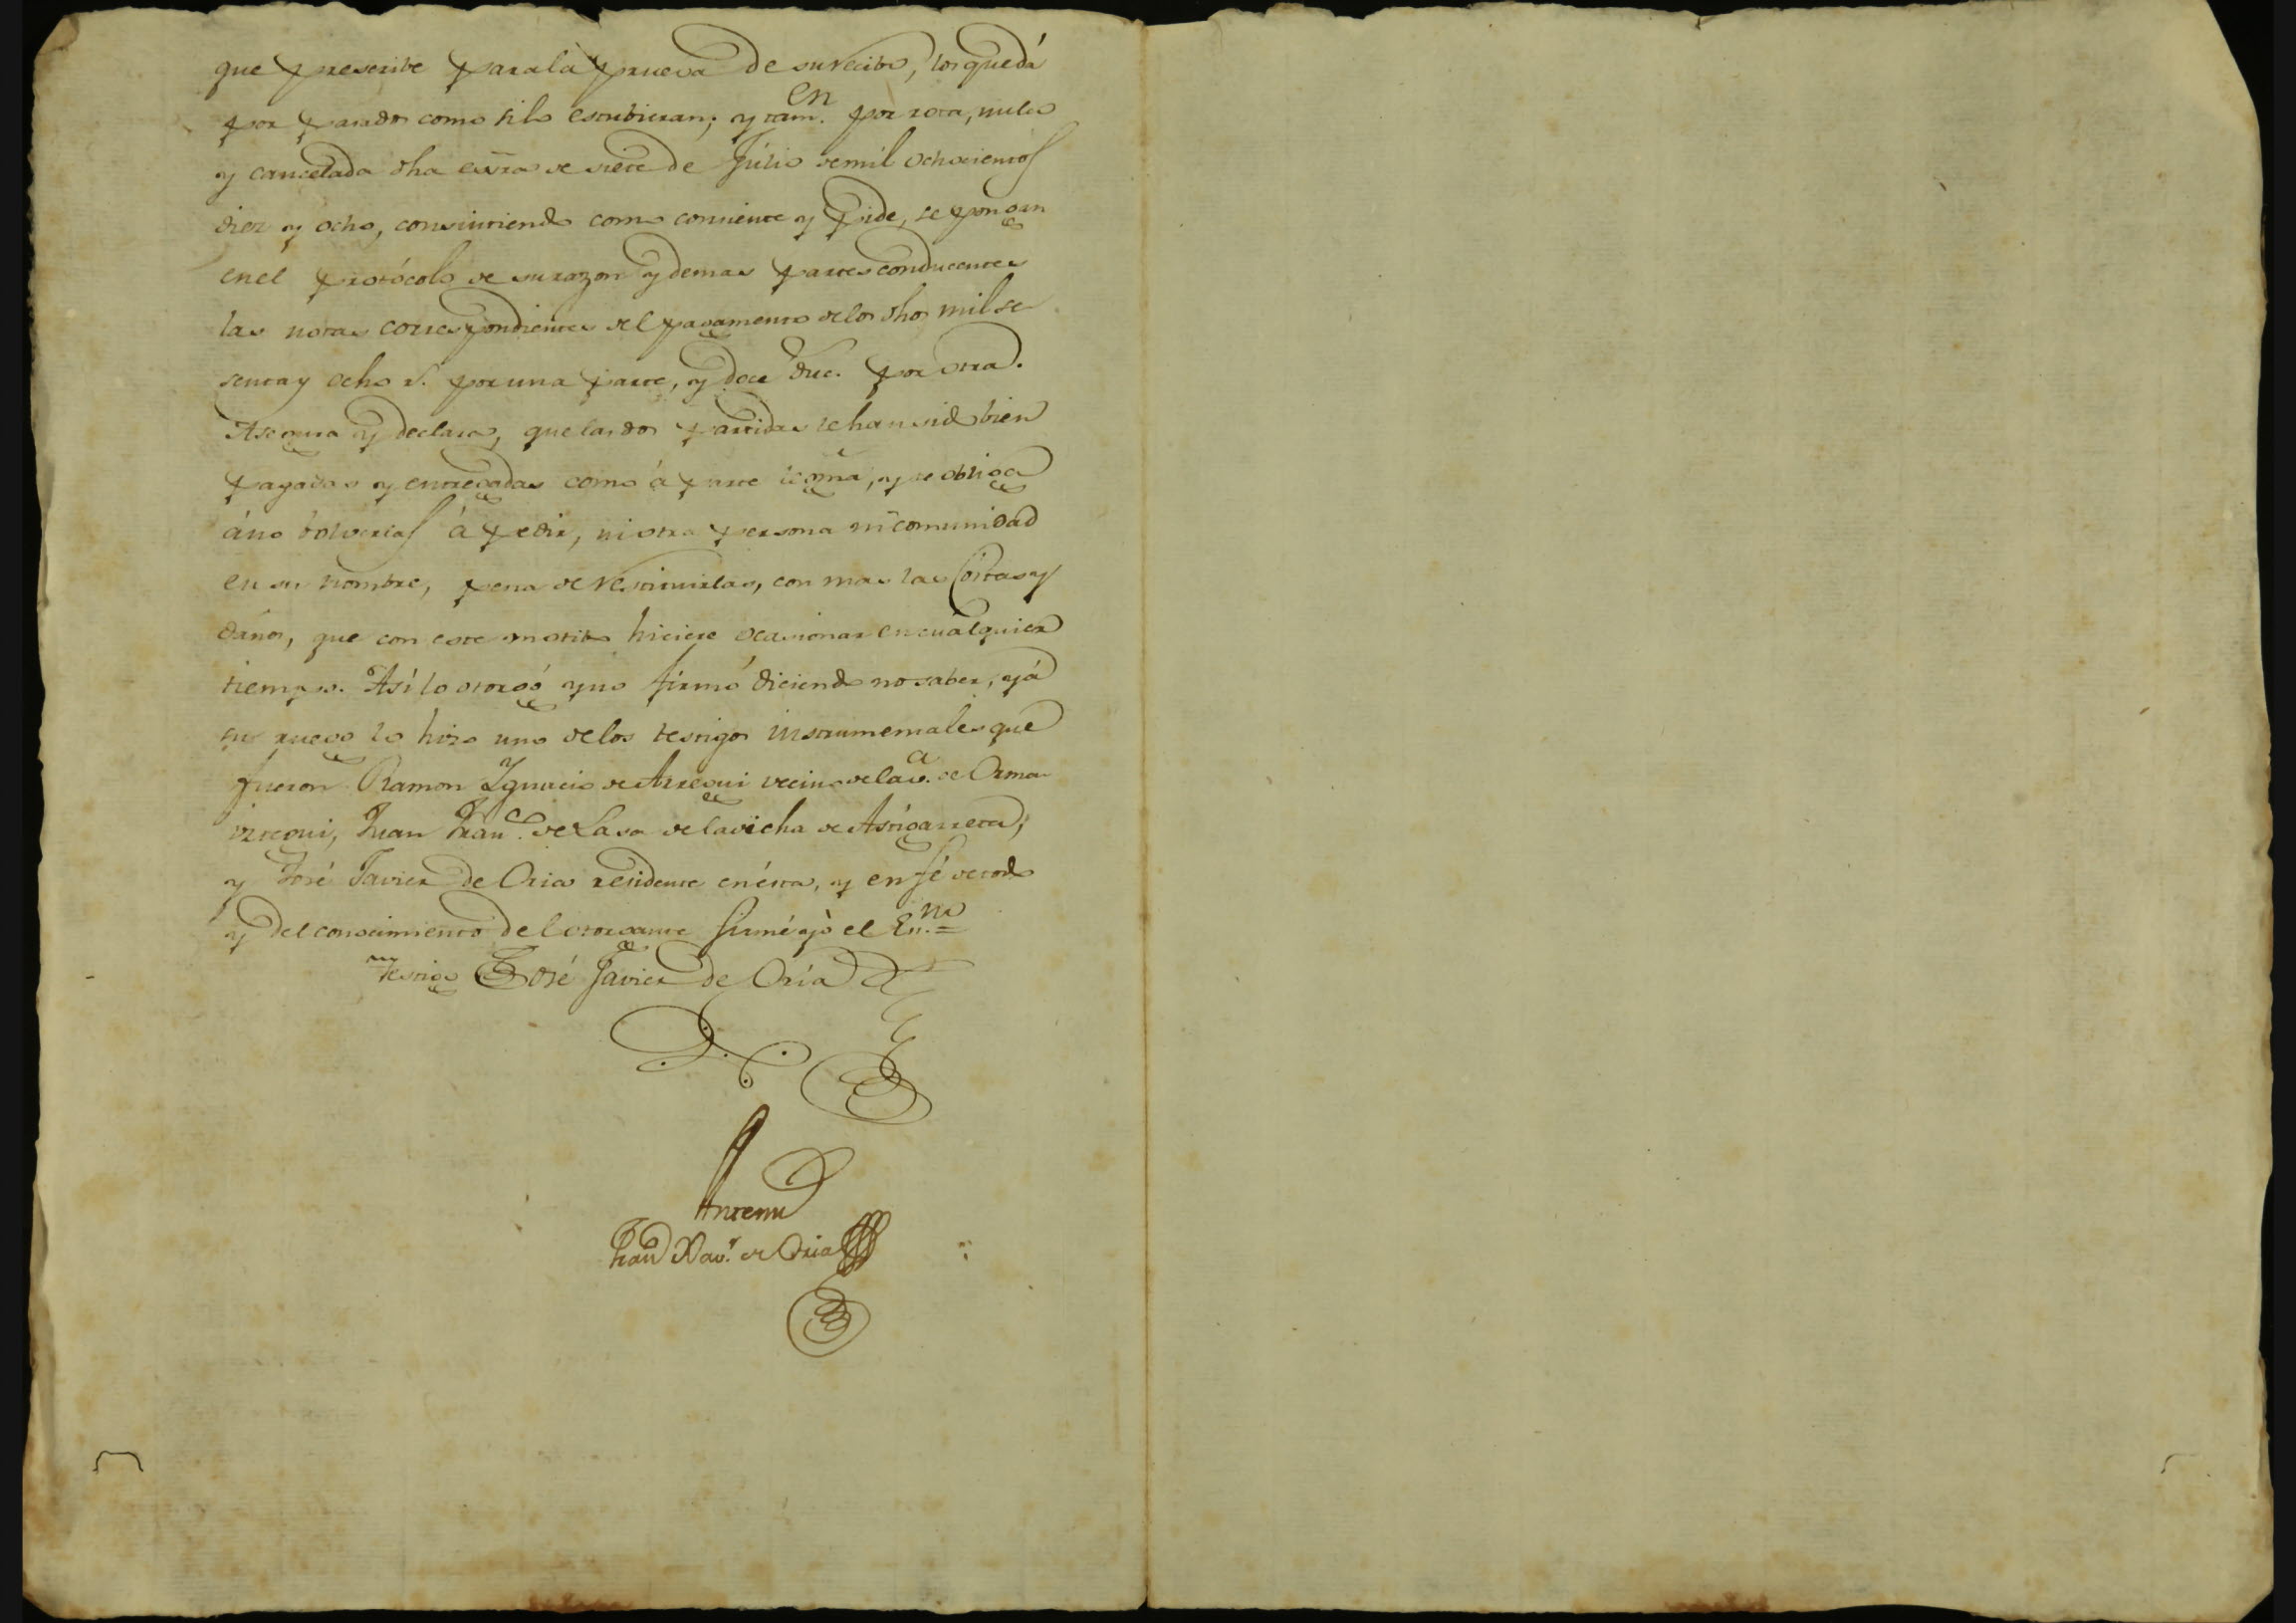 que prescribe para la prueva de su recibo, los que dá
por pasados como si lo estubieran; y tam.en por rota, nula
y cancelada dha essra de siete de Júlio de mil ochocientos
diez y ocho, consintiendo como consiente y pide, se pongan
en el protócolo de su razon y demas partes conducentes
las notas correspondientes del pagamento de los dhos mil se
senta y ocho r.s por una parte, y doce duc. por otra.
Asegura y declara, que las dos partidas le han sido bien
pagadas y entregadas como á parte legma, y se obliga
á no bolverlas á pedir, ni otra persona ni comunidad
en su nombre, pena de restituirlas, con mas las Costas y
daños, que con este motibo hiciere ocasionar en cualquier
tiempo. Así lo otorgó y no firmó diciendo no saber, y á
su ruego lo hizo uno de los testigos instrumentales que
fueron Ramon Ygnacio de Arregui vecino de la v.a de Orma
iztegui, Juan Fran.co de Lasa de la dicha de Astigarreta,
y José Javier de Oria residente en ésta, y en fé de todo
y del conocimiento del otorgante firmé yò el En.no =
Testigo José Javier de Oria
Antemi
Fran Xav.r de Oria